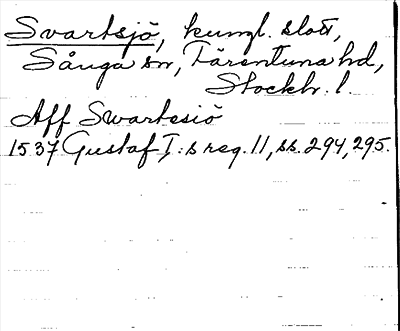 Svartsjö, kungl. slott,
Sånga sn, Färentuna hd,
Stockh. l.
Aff Swartesiö
1537 Gustaf I:s reg. 11, ss. 294, 295.